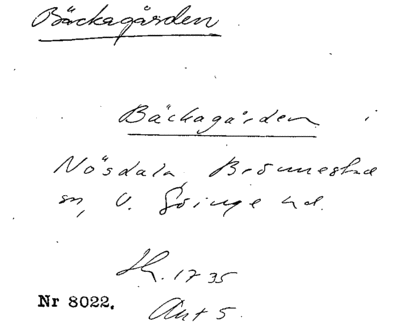 Bäckagården
Bäckagården i
Nösdala, Brönnestad
sn, V. Göinge hd.
Jh. 1735
Nr 8022.
Ant 5.